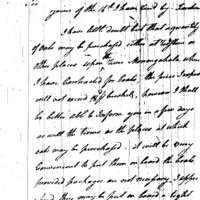 yours of the 15th I have sent by
I have little doubt but that a quantity
of Oats may be purchased either at
other places upon the Monongahela where
I have Contracted for Loads, the price I expect
will not exceed bushels, however I shall
be better able to Inform you in a few days
as well the Terms as the places at which
oats may be purchased. it will be very
Convenient to put them on board the boats
provided packages are not necessary, I
And they may be put on board a